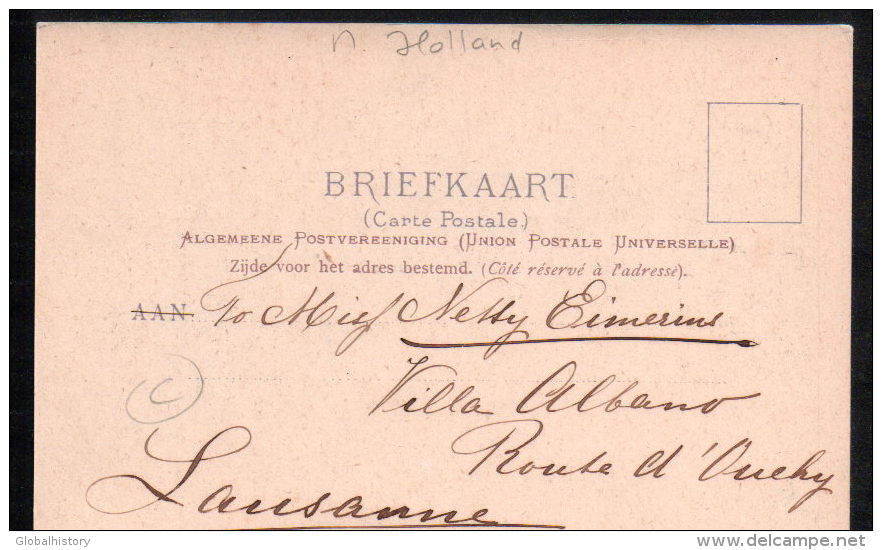 N. Holland
BRIEFKAART
(Carte Postale.)
ALGEMEENE POSTVEREENIGING (UNION POSTALE UNIVERSELLE)
Zijde voor het adres bestemd. (Côté réservé à l'adresse).
AAN To Miss Netty Eimerins
C
Villa Albano
Route d'Ouchy
Lausanne
Globalhistory
delcampe.net